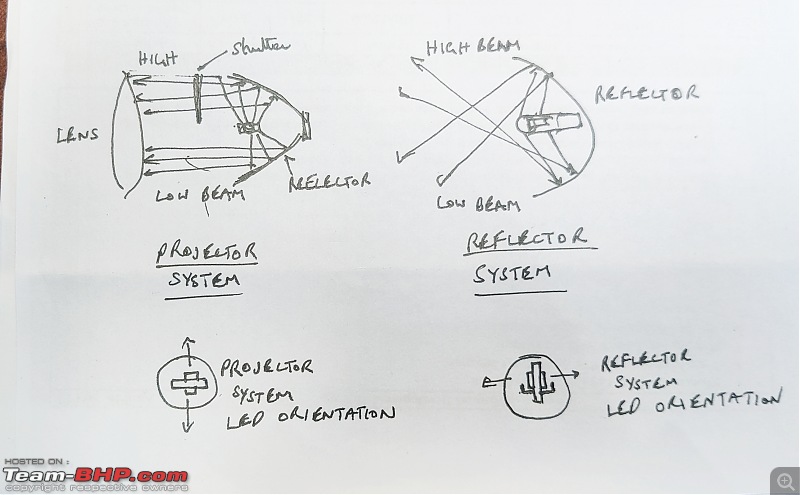 HIGH
Shutter
LENS
LOW BEAM
REFLECTOR
PROJECTOR
SYSTEM
HIGH BEAM
REFLECTOR
LOW BEAM
REFLECTOR
SYSTEM
PROJECTOR
SYSTEM
LED ORIENTATION
REFLECTOR
SYSTEM
LED ORIENTATION
HOSTED ON :
Team-BHP.com
copyright respective owners